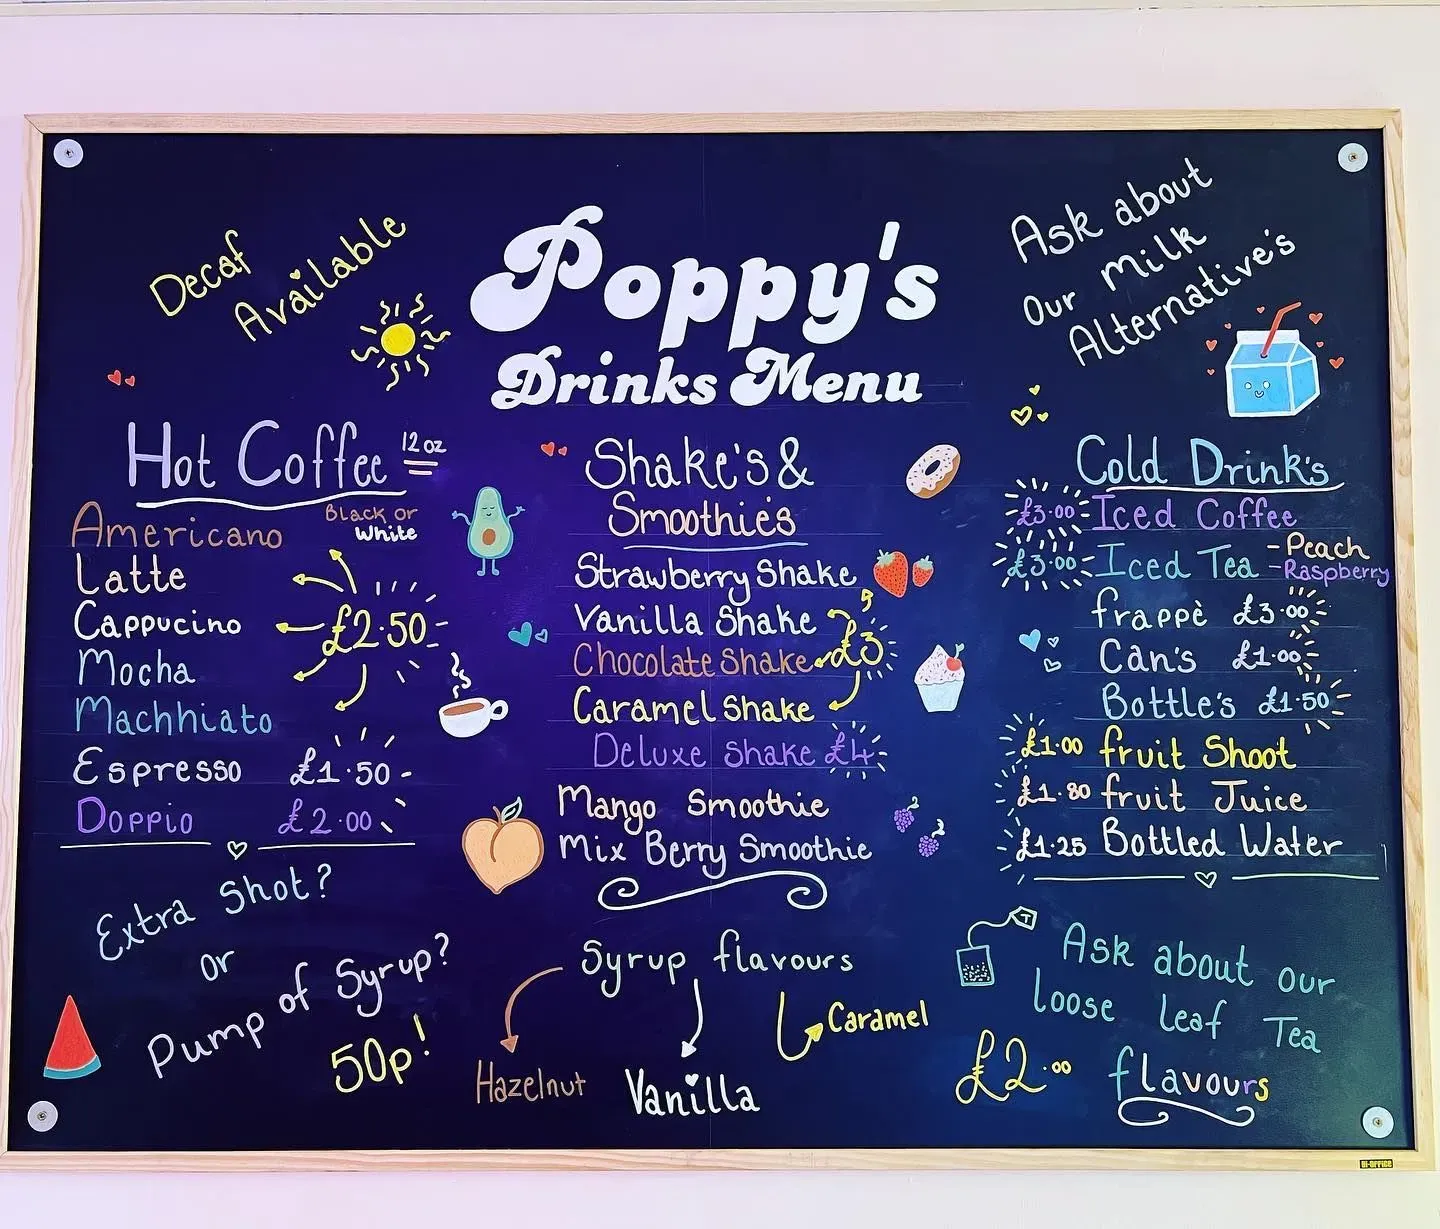 Decaf
Available
Poppy's
Drinks Menu
Ask about
our Milk
Alternative's
Hot Coffee 12oz
Americano Black or
White
Latte
Cappucino £2.50
Mocha
Machhiato
Espresso £1.50
Doppio £2.00
Extra Shot?
or
Pump of Syrup?
50p!
Shake's &
Smoothies
Strawberry Shake
Vanilla Shake £3
Chocolate Shake
Caramel Shake
Deluxe Shake £4
Mango Smoothie
Mix Berry Smoothie
Syrup flavours
Caramel
Hazelnut
Vanilla
Cold Drink's
£3.00 Iced Coffee
£3.00 Iced Tea - Peach
- Raspberry
frappè £3.00
Can's £1.00
Bottle's £1.50
£1.00 fruit Shoot
£1.80 fruit Juice
£1.25 Bottled Water
T
Ask about our
loose leaf Tea
£2.00 flavours
BI-OFFICE